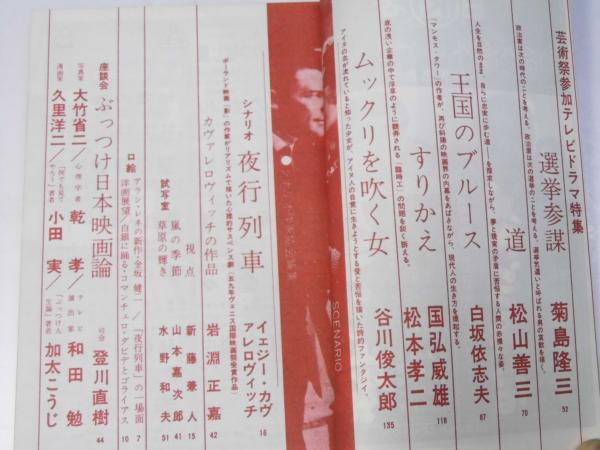 芸術祭参加テレビドラマ特集
政治家は次の時代のことを考える、政治屋は次の選挙のことを考える。選挙気違いと呼ばれる男の哀歓を描く。
選挙参謀 菊島隆三 52
人生を自然のまま、自らに忠実に歩む道――を模索しながら、夢と現実の矛盾に苦悩する人間の赤裸々な姿。
道 松山善三 70
王国のブルース 白坂依志夫 87
「マンモス・タワー」の作者が、再び斜陽の映画界の内幕をあばきながら、現代人の生き方を喚起する。
すりかえ 国弘威雄 松本孝二 118
底の浅い企業の中で浮草のように翻弄される「臨時工」の問題を鋭く訴える。
ムックリを吹く女 谷川俊太郎 135
アイヌの血が流れていると知った少女が、アイヌ人の自覚に生きようとする愛と苦悩を描いた詩的ファンタジイ。
SCENARIO
シナリオ 夜行列車 イェジー・カヴァレロヴィッチ 16
ポーランド映画「影」の作家がリアリズムで描いた心理的サスペンス劇(五九年ヴェニス国際映画祭受賞作品)
カヴァレロヴィッチの作品 岩淵正嘉 42
視点 新藤兼人 15
試写室 嵐の季節 山本嘉次郎 41
草原の輝き 水野和夫 51
口絵 アラン・レネの新作・金坂健二/「夜行列車」の一場面 7
洋画展望/白銀に踊る・コマンチェロ・ダビデとゴライアス 10
座談会 ぶっつけ日本映画論 司会 登川直樹 44
写真家 大竹省二/心理学者 乾孝/テレビ演出家 和田勉
漫画家 久里洋二/「何でも見てやろう」著者 小田実/「ぶっつけ人生論」著者 加太こうじ